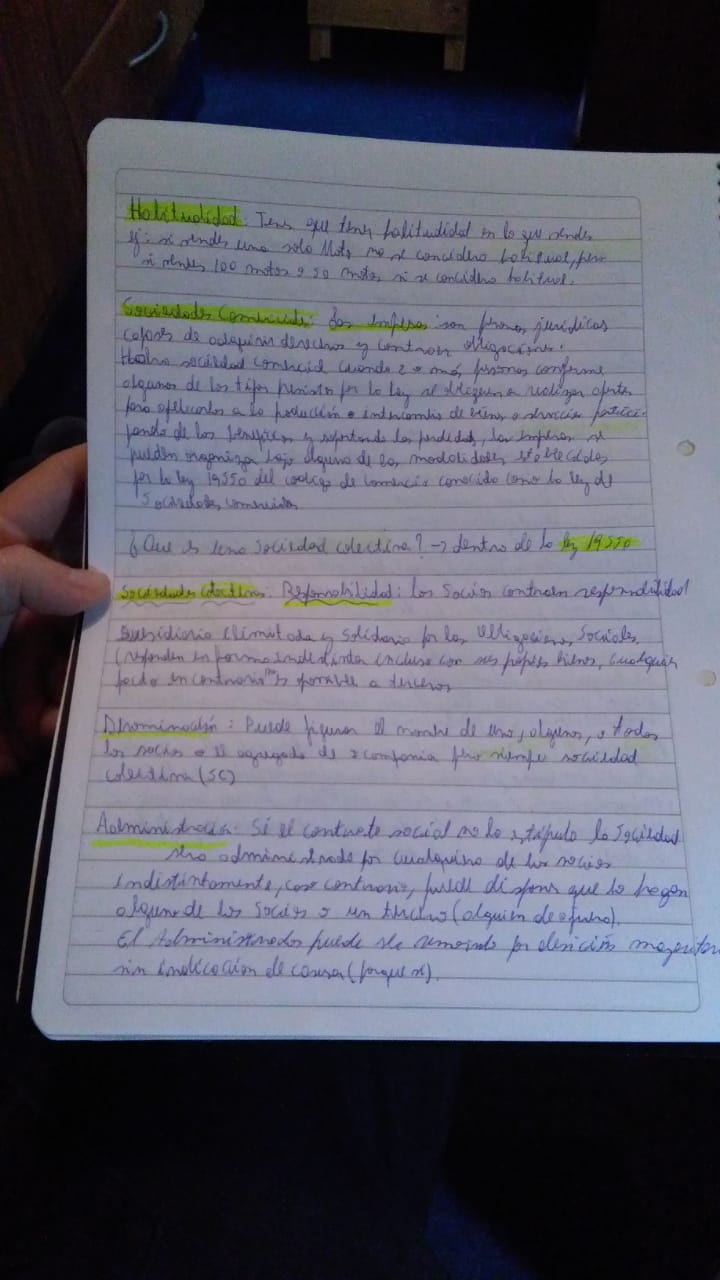 Habitualidad: Tenes que tener habitualidad en lo que vendes
ej: si vendes una sola Moto no se concidera habitual, pero
si vendes 100 motos o 50 motos si se concidera habitual.
Sociedades Comerciales: Las empresas son personas jurídicas
capaces de adquirir derechos y contraer obligaciones.
Habra sociedad comercial cuando 2 o más personas conforme
algunos de los tipos previstos por la ley se obliguen a realizar aportes
para aplicarlos a la producción o intercambio de bienes o servicios partici-
pando de los beneficios y soportando las perdidas, las empresas se
pueden organizar bajo alguna de las modalidades establecidas
por la ley 19550 del codigo de comercio conocido como la ley de
Sociedades comerciales
¿Que es una Sociedad colectiva? → dentro de la ley 19550
Sociedades Colectivas: Responsabilidad: los Socios contraen responsabilidad
Subsidiaria ilimitada y Solidaria por las Obligaciones Sociales,
(responden en forma indistinta incluso con sus propios bienes, cualquier
pacto en contrario no es a terceros
Denominación: Puede figurar el nombre de uno, algunos, o todos
los socios o el agregado de y compania pero siempre sociedad
colectiva (SC)
Administración: Si el contrato social no lo estipula la Sociedad
sera administrada por cualquiera de los socios
indistintamente, caso contrario, puede disponer que lo hagan
alguno de los Socios o un tercero (alguien de afuera).
El Administrador puede ser removido por desición
sin indicación de causa (porque si).